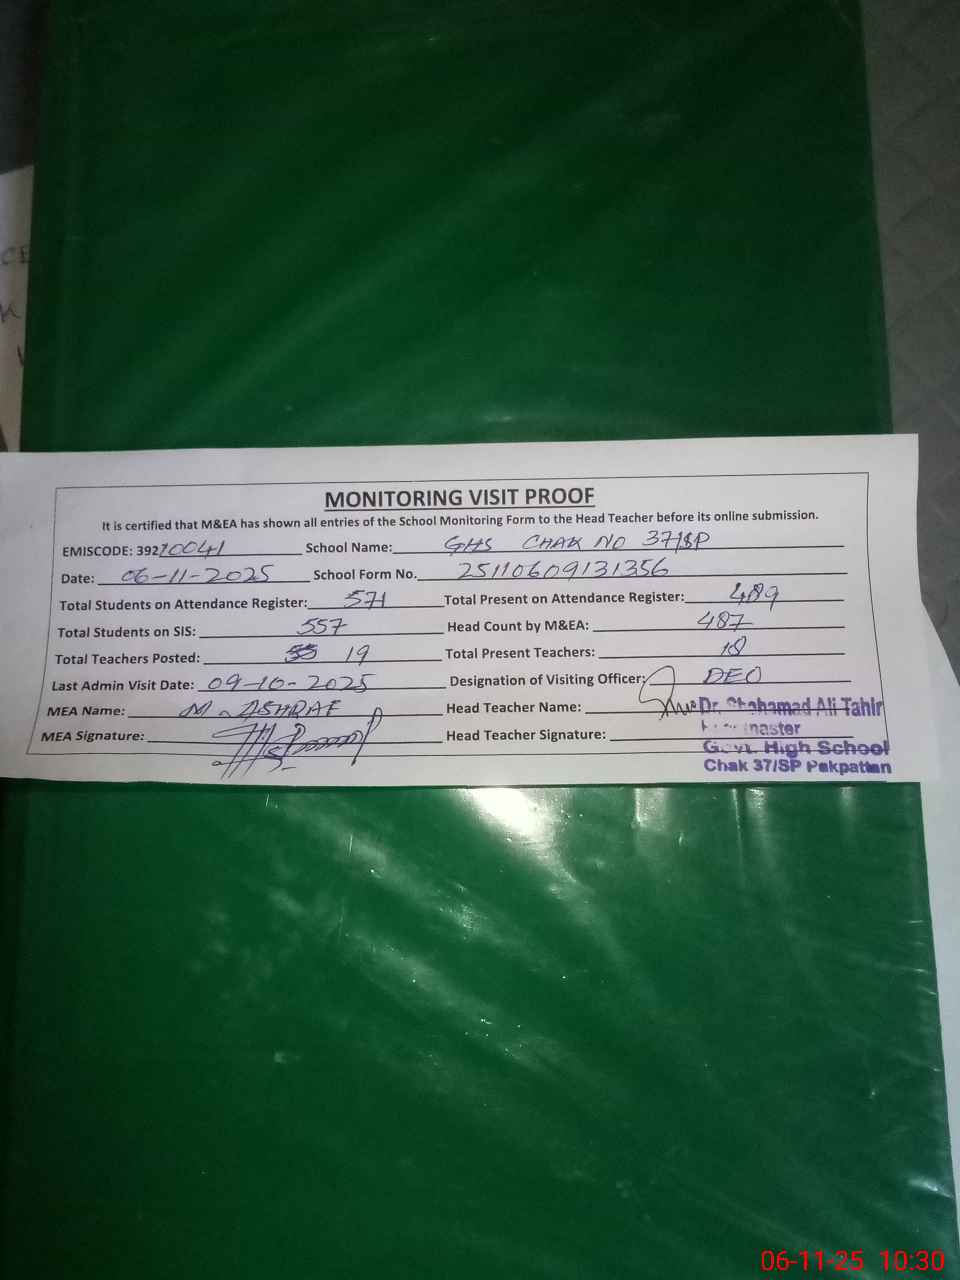 CE
MONITORING VISIT PROOF
It is certified that M&EA has shown all entries of the School Monitoring Form to the Head Teacher before its online submission.
EMISCODE: 39210041 School Name: GHS CHAK NO 37/SP
Date: 06-11-2025 School Form No. 25110609131356
Total Students on Attendance Register: 571 Total Present on Attendance Register: 489
Total Students on SIS: 557 Head Count by M&EA: 487
Total Teachers Posted: 19 Total Present Teachers: 18
Last Admin Visit Date: 09-10-2025 Designation of Visiting Officer: DEO
MEA Name: M. ASHRAF Head Teacher Name: Dr. Shahamad Ali Tahir
MEA Signature: Head Teacher Signature:
Govt. High School
Chak 37/SP Pakpattan
06-11-25 10:30